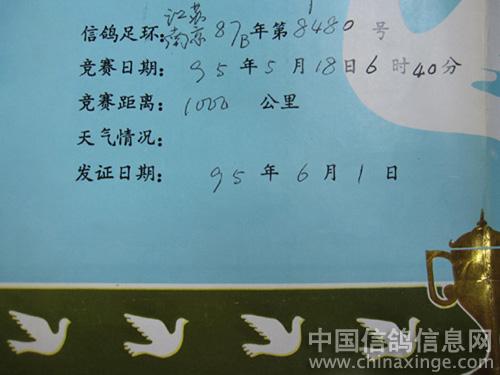 江苏
信鸽足环:南京87B年第8480号
竞赛日期:95年5月18日6时40分
竞赛距离:1000公里
天气情况:
发证日期:95年6月1日
中国信鸽信息网
www.chinaxinge.com